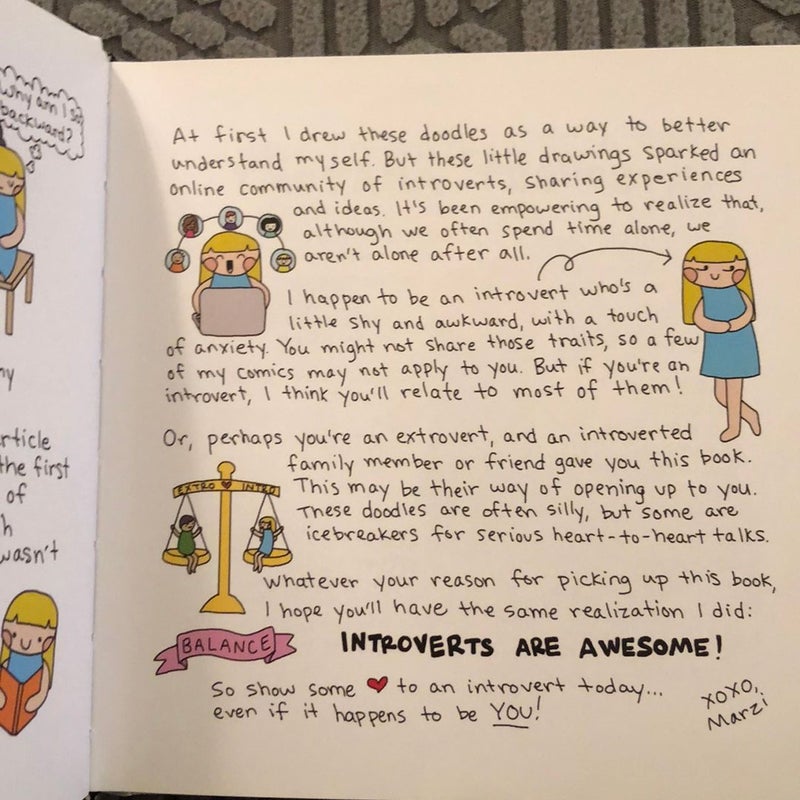 Why am I so
backward?
ny
rticle
the first
of
h
wasn't
At first I drew these doodles as a way to better
understand myself. But these little drawings sparked an
online community of introverts, sharing experiences
and ideas. It's been empowering to realize that,
although we often spend time alone, we
aren't alone after all.
I happen to be an introvert who's a
little shy and awkward, with a touch
of anxiety. You might not share those traits, so a few
of my comics may not apply to you. But if you're an
introvert, I think you'll relate to most of them!
Or, perhaps you're an extrovert, and an introverted
family member or friend gave you this book.
EXTRO ♥ INTRO
This may be their way of opening up to you.
These doodles are often silly, but some are
icebreakers for serious heart-to-heart talks.
Whatever your reason for picking up this book,
I hope you'll have the same realization I did:
BALANCE
INTROVERTS ARE AWESOME!
So show some ♥ to an introvert today...
even if it happens to be YOU!
XOXO,
Marzi